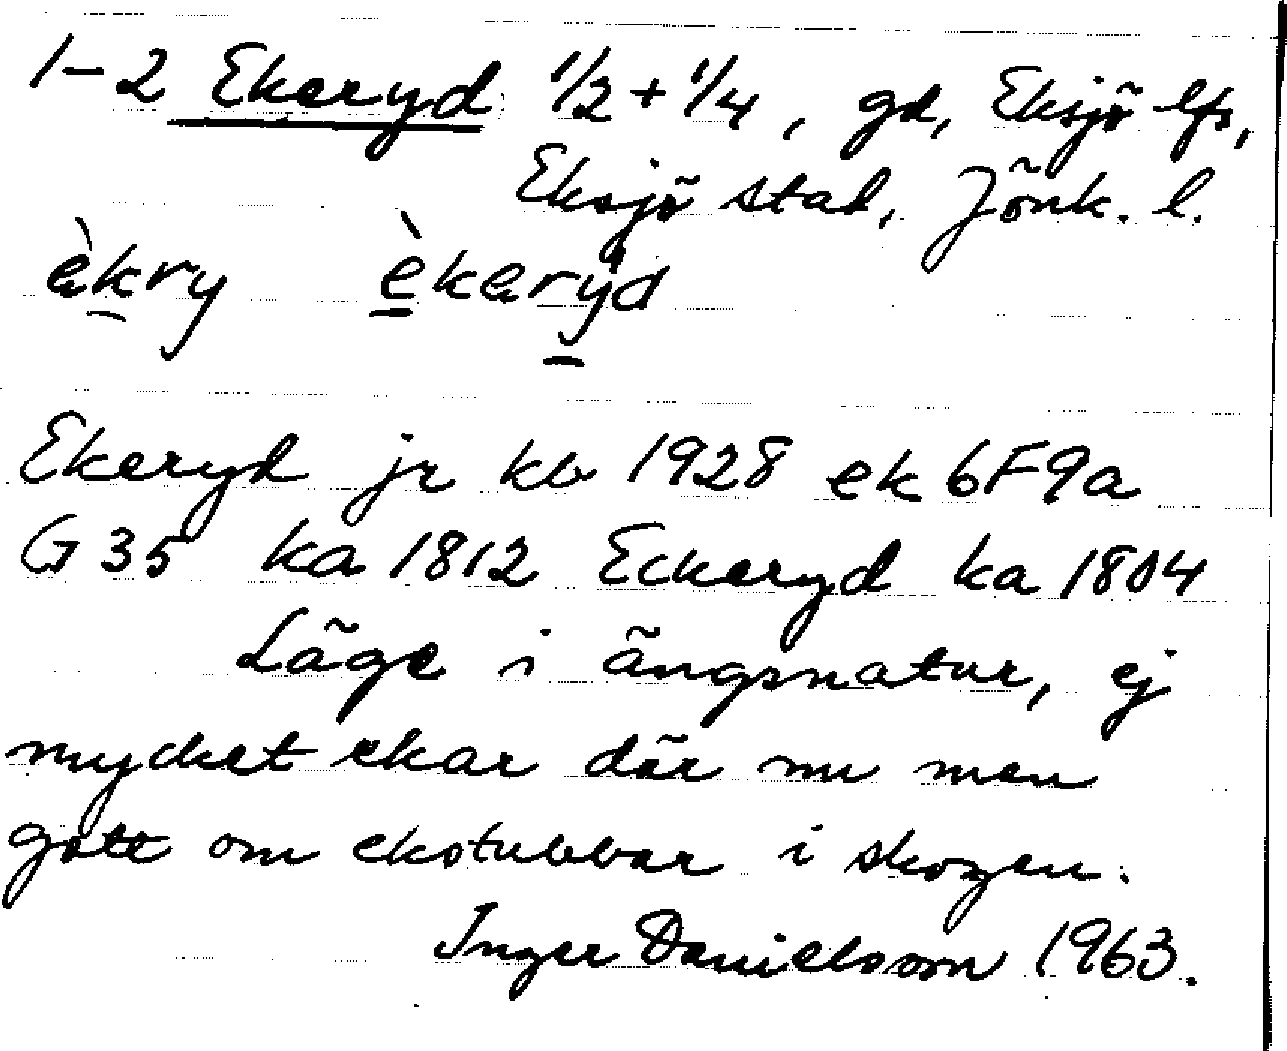 1-2 Ekeryd 1/2 + 1/4, gd, Eksjö lfs,
Eksjö stad, Jönk. l.
èkry èkeryd
Ekeryd jr kb 1928 ek 6F9a
G 35 ka 1812 Eckeryd ka 1804
Läge i ängsnatur, ej
mycket ekar där nu men
gott om ekstubbar i skogen.
Inger Danielsson 1963.